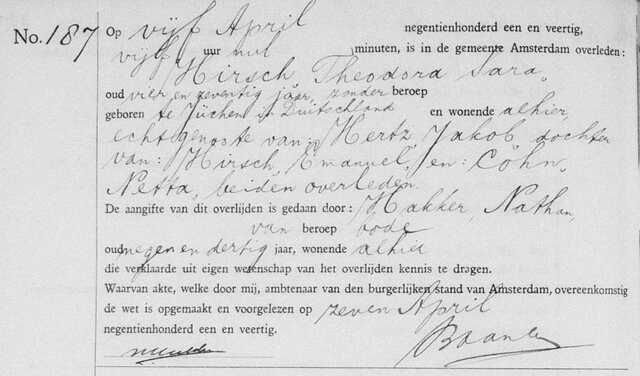 No. 187
Op vijf April negentienhonderd een en veertig,
vijf uur nul minuten, is in de gemeente Amsterdam overleden:
Hirsch, Theodora Sara,
oud vier en zeventig jaar, zonder beroep
geboren te Jüchen in Duitschland en wonende alhier,
echtgenoote van: Hertz, Jakob, dochter
van: Hirsch, Emanuel, en: Cohn,
Netta, beiden overleden.
De aangifte van dit overlijden is gedaan door: Hakker, Nathan,
van beroep bode
oud negen en dertig jaar, wonende alhier
die verklaarde uit eigen wetenschap van het overlijden kennis te dragen.
Waarvan akte, welke door mij, ambtenaar van den burgerlijken stand van Amsterdam, overeenkomstig
de wet is opgemaakt en voorgelezen op zeven April
negentienhonderd een en veertig.